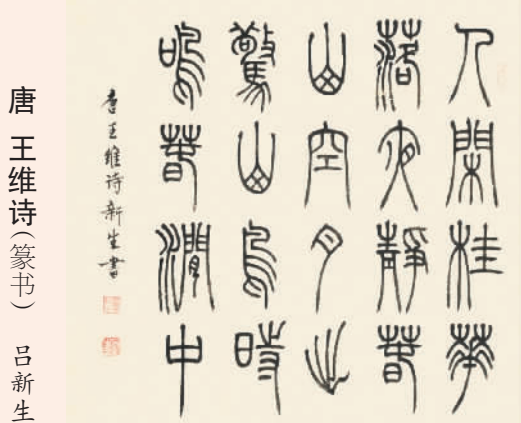 人閑桂華
落夜靜春
山空月出
驚山鳥時
鳴春澗中
唐王维诗新生書
唐 王维诗(篆书) 吕新生